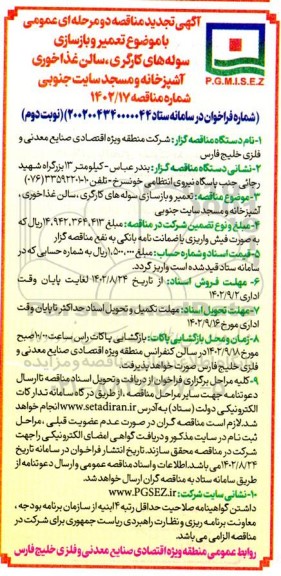 آگهی تجدید مناقصه دو مرحله ای عمومی
با موضوع تعمیر و بازسازی
سوله های کارگری، سالن غذاخوری
آشپزخانه و مسجد سایت جنوبی
شماره مناقصه ۱۴۰۲/۱۷
P.G.M.I.S.E.Z
(شماره فراخوان در سامانه ستاد ۲۰۰۲۰۰۴۳۴۰۰۰۰۰۴۴) (نوبت دوم)
۱-نام دستگاه مناقصه گزار: شرکت منطقه ویژه اقتصادی صنایع معدنی و
فلزی خلیج فارس
۲-نشانی دستگاه مناقصه گزار: بندرعباس-کیلومتر ۱۳ بزرگراه شهید
رجائی جنب پاسگاه نیروی انتظامی خونسرخ-تلفن ۱۰-۳۳۵۹۲۲۰۱ (۰۷۶)
۳-موضوع مناقصه: تعمیر و بازسازی سوله های کارگری، سالن غذاخوری،
آشپزخانه و مسجد سایت جنوبی
۴-مبلغ و نوع تضمین شرکت در مناقصه: مبلغ ۱۴،۹۴۲،۳۶۴،۴۱۳ ریال که
به صورت فیش واریزی یا ضمانت نامه بانکی به نفع مناقصه گزار
۵-قیمت اسناد و شماره حساب: مبلغ ۱،۵۰۰،۰۰۰ ریال به شماره حسابی که در
سامانه ستاد قید شده است واریز گردد.
۶- مهلت فروش اسناد: از تاریخ ۱۴۰۲/۸/۲۴ لغایت پایان وقت
اداری ۱۴۰۲/۹/۲
۷-مهلت تحویل اسناد: مهلت تکمیل و تحویل اسناد حداکثر تا پایان وقت
اداری مورخ ۱۴۰۲/۹/۱۶
۸-زمان و محل بازگشایی پاکات: بازگشایی پاکات راس ساعت ۱۰:۰۰ صبح
مورخ ۱۴۰۲/۹/۱۸ در سالن کنفرانس منطقه ویژه اقتصادی صنایع معدنی و
فلزی خلیج فارس صورت خواهد پذیرفت
۹-کلیه مراحل برگزاری فراخوان از دریافت و تحویل اسناد مناقصه تا ارسال
دعوتنامه جهت سایر مراحل مناقصه، از طریق درگاه سامانه تدارکات
الکترونیکی دولت (ستاد) به آدرس www.setadiran.ir انجام خواهد
شد. لازم است مناقصه گران در صورت عدم عضویت قبلی، مراحل
ثبت نام در سایت مذکور و دریافت گواهی امضای الکترونیکی را جهت
شرکت در مناقصه محقق سازند. تاریخ انتشار فراخوان در سامانه تاریخ
۱۴۰۲/۸/۲۴ می باشد. اطلاعات و اسناد مناقصه عمومی و ارسال دعوتنامه از
طریق سامانه ستاد به مناقصه گران ارسال خواهد شد.
۱۰-نشانی سایت شرکت: www.PGSEZ.ir
داشتن گواهینامه صلاحیت حداقل رتبه ۴ ابنیه از سازمان برنامه بودجه،
معاونت برنامه ریزی و نظارت راهبردی ریاست جمهوری برای شرکت در
مناقصه الزامی می باشد.
روابط عمومی منطقه ویژه اقتصادی صنایع معدنی و فلزی خلیج فارس